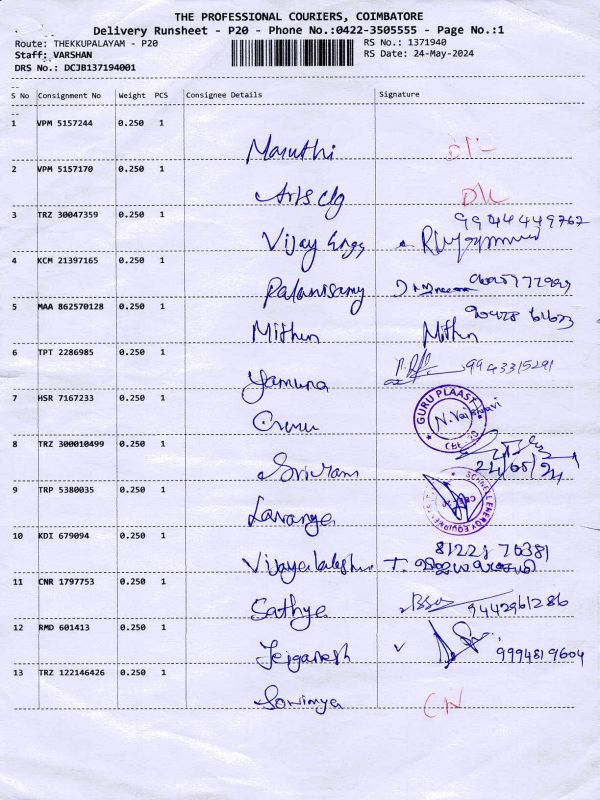 THE PROFESSIONAL COURIERS, COIMBATORE
Delivery Runsheet - P20 - Phone No.:0422-3505555 - Page No.:1
Route: THEKKUPALAYAM - P20
RS No.: 1371940
Staff: VARSHAN
RS Date: 24-May-2024
DRS No.: DCJB137194001
S No Consignment No Weight PCS Consignee Details Signature
1 VPM 5157244 0.250 1
Maruthi
2 VPM 5157170 0.250 1
Arts clg DL
3 TRZ 30047359 0.250 1
9944449762
Vijay Engg
4 KCM 21397165 0.250 1
Palanisamy
5 MAA 862570128 0.250 1
Mithun Mithun
6 TPT 2286985 0.250 1
Yamuna 9943315291
7 HSR 7167233 0.250 1
GURU PLAAST
N. Vaishnavi
Guru
8 TRZ 300010499 0.250 1
Sriram 24/05/24
9 TRP 5380035 0.250 1
Lavanya
10 KDI 679094 0.250 1
81228 70381
Vijayalakshmi T. விஜயலட்சுமி
11 CNR 1797753 0.250 1
Sathya 9442961286
12 RMD 601413 0.250 1
Jeiganesh 9994819604
13 TRZ 122146426 0.250 1
Sowmya CN